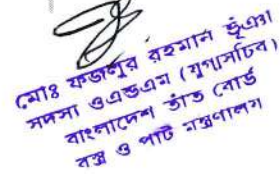 মোঃ ফজলুর রহমান ভূঁএরা
সদস্য ওএন্ডএম (যুগ্মসচিব)
বাংলাদেশ তাঁত বোর্ড
বস্ত্র ও পাট মন্ত্রণালয়